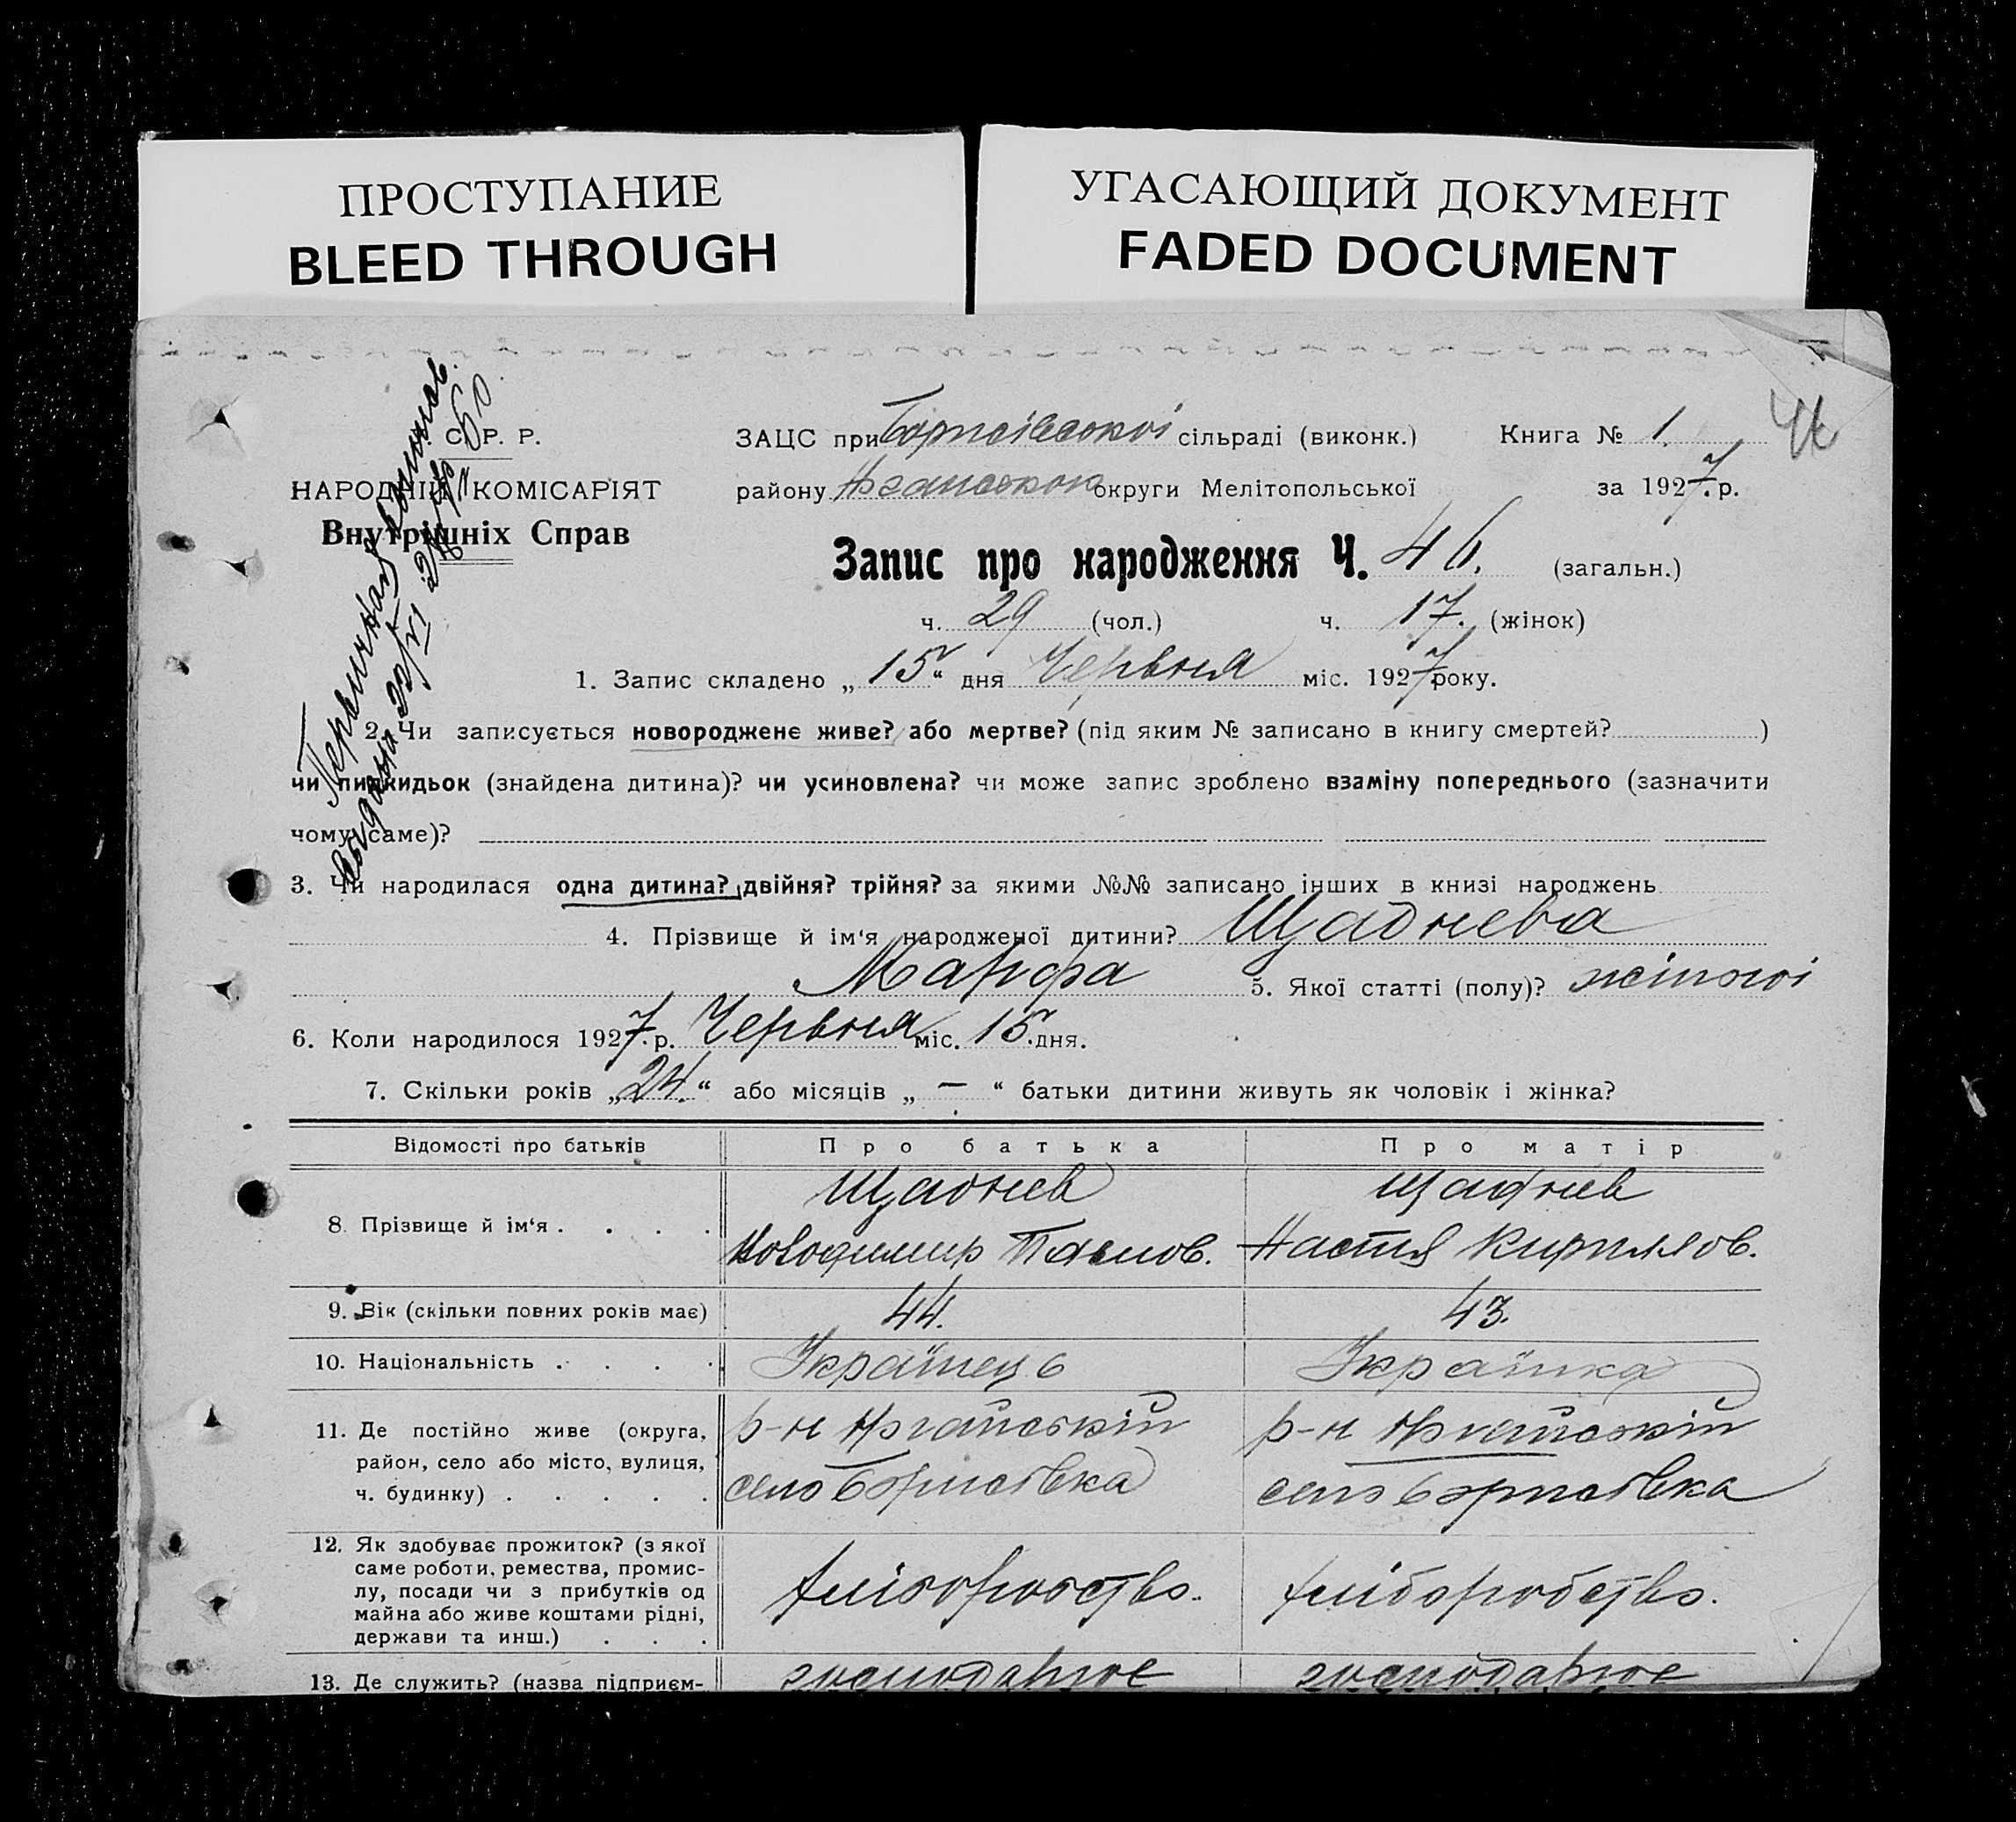 ПРОСТУПАНИЕ
BLEED THROUGH
УГАСАЮЩИЙ ДОКУМЕНТ
FADED DOCUMENT
С. Р. Р.
НАРОДНІЙ КОМІСАРІЯТ
Внутрішніх Справ
ЗАЦС при Борисівської сільраді (виконк.) Книга № 1.
району округи Мелітопольської за 1927 р.
Запис про народження Ч. 46. (загальн.)
ч. 29 (чол.) ч. 17. (жінок)
1. Запис складено „15“ дня Червня міс. 1927 року.
2. Чи записується новороджене живе? або мертве? (під яким № записано в книгу смертей? )
чи підкидьок (знайдена дитина)? чи усиновлена? чи може запис зроблено взаміну попереднього (зазначити
чому саме)?
3. Чи народилася одна дитина? двійня? трійня? за якими №№ записано інших в книзі народжень
4. Прізвище й ім‘я народженої дитини? Щаднева
Марфа 5. Якої статті (полу)? жіночої
6. Коли народилося 1927 р. Червня міс. 15 дня.
7. Скільки років „24.“ або місяців „—“ батьки дитини живуть як чоловік і жінка?
Відомості про батьків Про батька Про матір
8. Прізвище й ім‘я . . . . Щаднев Щаднев
Володимир Настя Кириллов.
9. Вік (скільки повних років має) 44. 43.
10. Національність . . . . Українець Українка
11. Де постійно живе (округа, р-н р-н
район, село або місто, вулиця, село Борисівка село Борисівка
ч. будинку) . . . . .
12. Як здобуває прожиток? (з якої
саме роботи, ремества, промис-
лу, посади чи з прибутків од хліборобство. хліборобство.
майна або живе коштами рідні,
держави та инш.) . . .
13. Де служить? (назва підприєм-